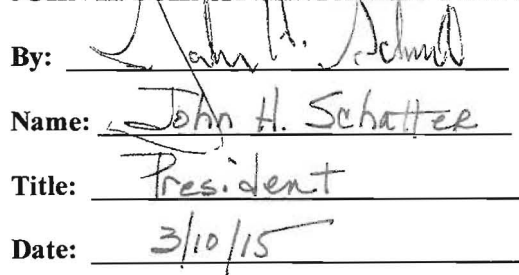 By: John H. Schnatter
Name: John H. Schnatter
Title: President
Date: 3/10/15